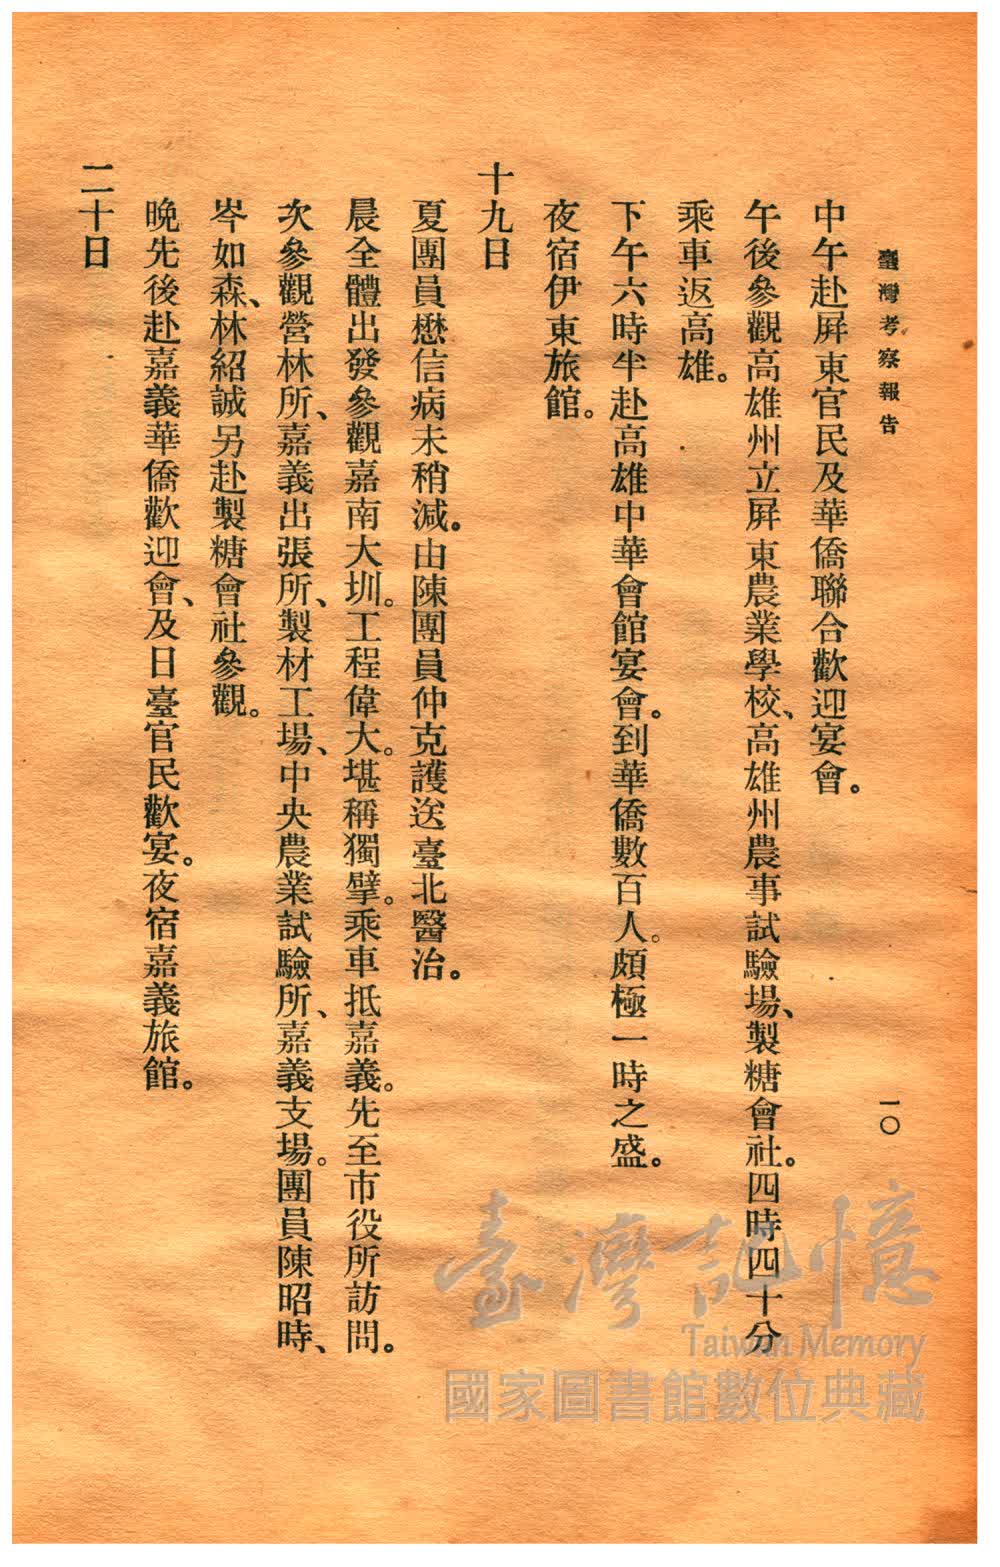 臺灣考察報告
一〇
中午赴屏東官民及華僑聯合歡迎宴會。
午後參觀高雄州立屏東農業學校、高雄州農事試驗場、製糖會社。四時四十分
乘車返高雄。
下午六時半赴高雄中華會館宴會。到華僑數百人。頗極一時之盛。
夜宿伊東旅館。
十九日
夏團員懋信病未稍減。由陳團員仲克護送臺北醫治。
晨全體出發參觀嘉南大圳。工程偉大。堪稱獨擘。乘車抵嘉義。先至市役所訪問。
次參觀營林所、嘉義出張所、製材工場、中央農業試驗所、嘉義支場。團員陳昭時、
岑如森、林紹誠另赴製糖會社參觀。
晚先後赴嘉義華僑歡迎會、及日臺官民歡宴。夜宿嘉義旅館。
二十日
臺灣記憶
Taiwan Memory
國家圖書館數位典藏